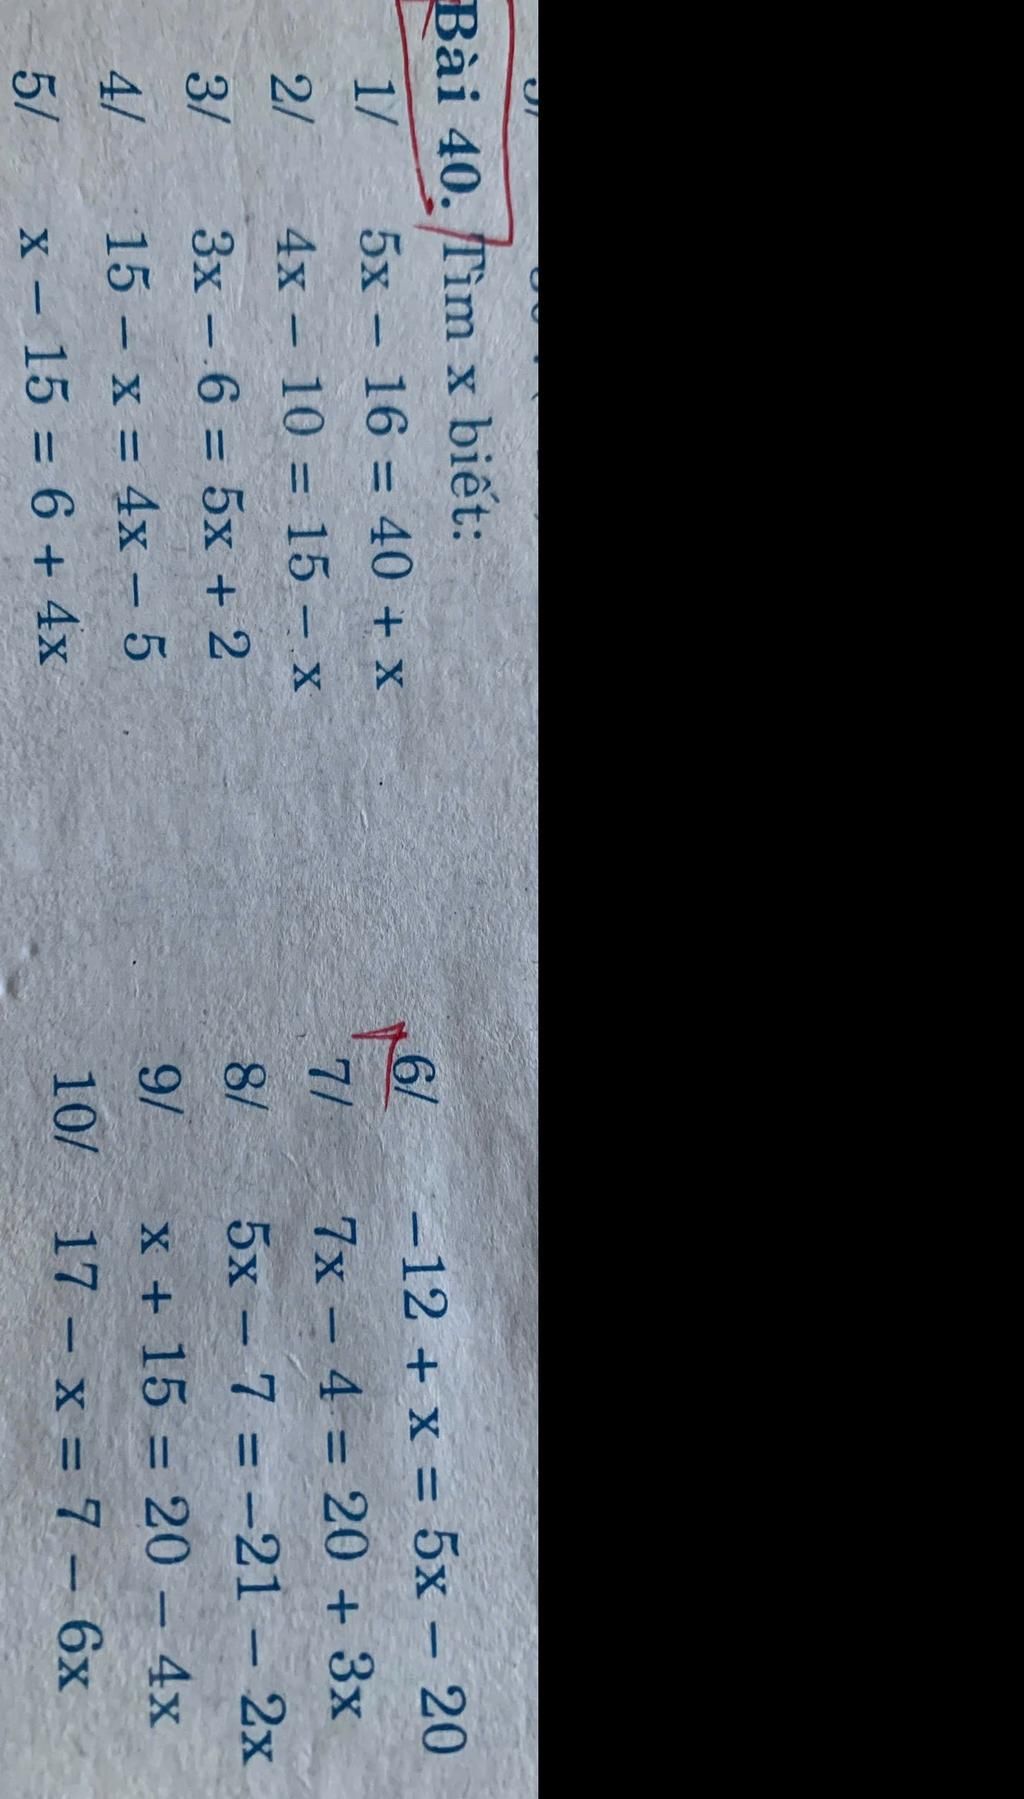 Bài 40. Tìm x biết:
1/ 5x – 16 = 40 + x
2/ 4x – 10 = 15 – x
3/ 3x – 6 = 5x + 2
4/ 15 – x = 4x – 5
5/ x – 15 = 6 + 4x
6/ –12 + x = 5x – 20
7/ 7x – 4 = 20 + 3x
8/ 5x – 7 = –21 – 2x
9/ x + 15 = 20 – 4x
10/ 17 – x = 7 – 6x